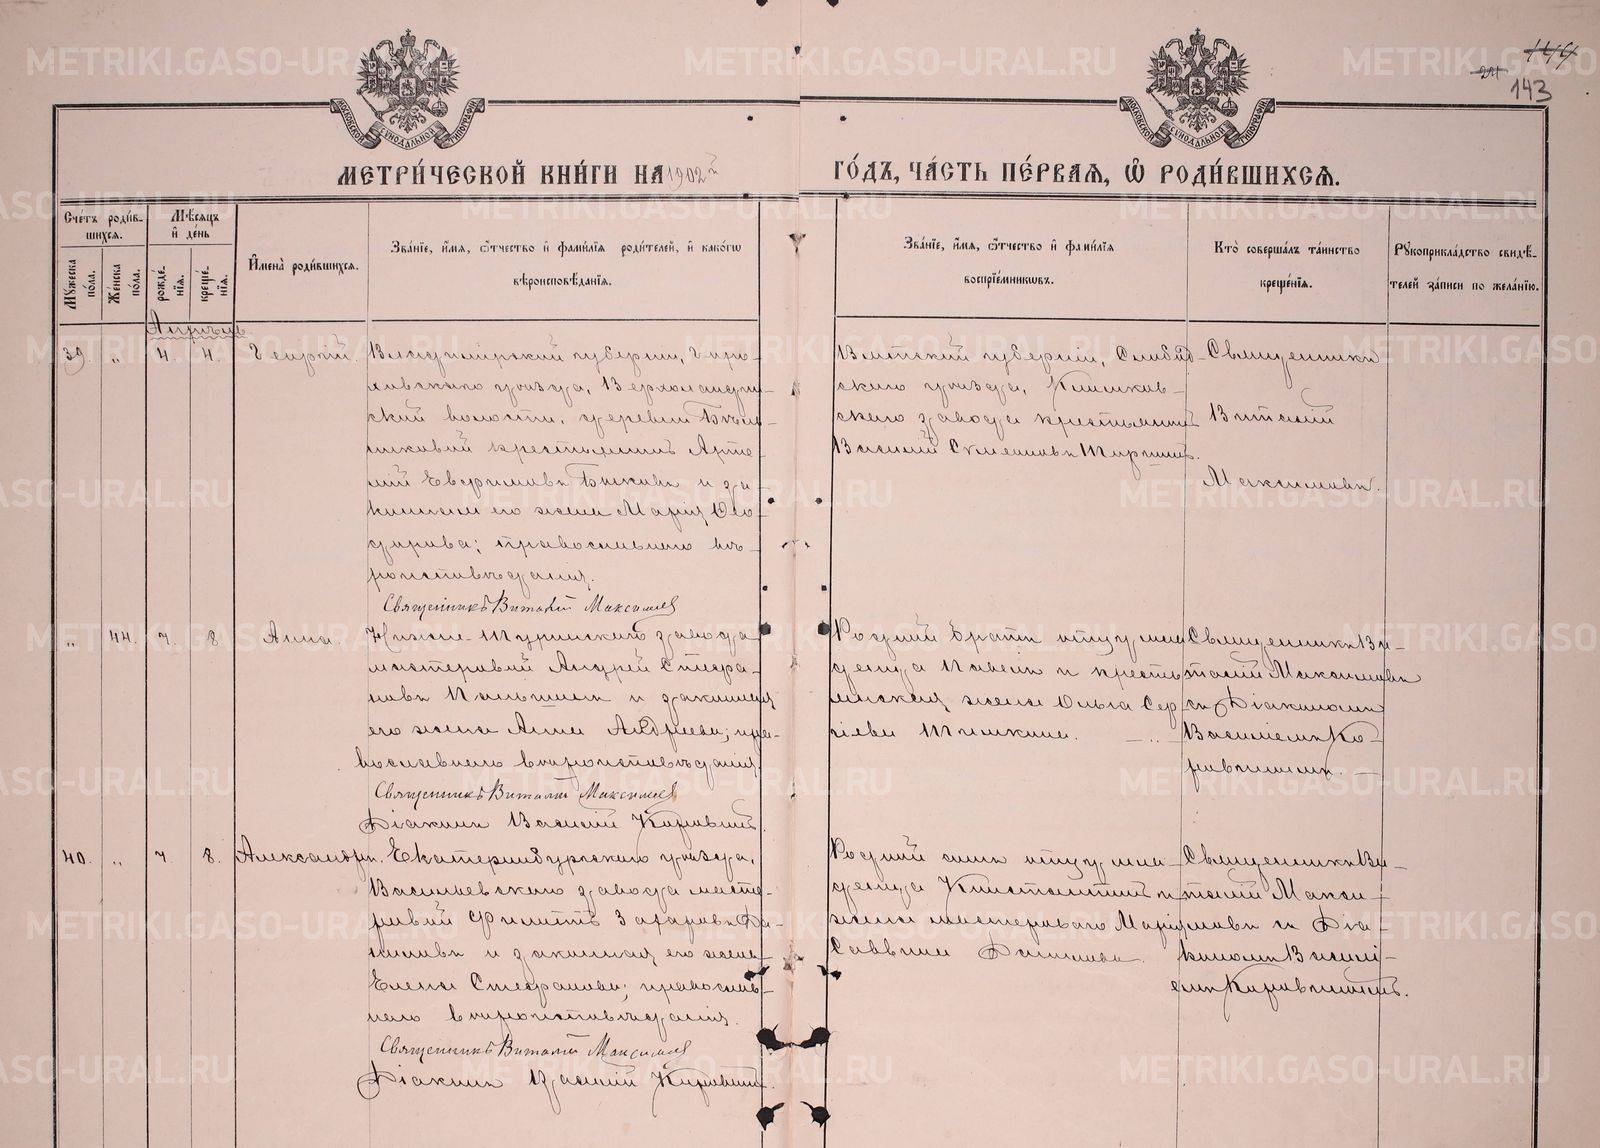 METRIKI.GASO-URAL.RU
144
24
143
МОСКОВСКОЙ СѴНОДАЛЬНОЙ ТИПОГРАФІИ
МОСКОВСКОЙ СѴНОДАЛЬНОЙ ТИПОГРАФІИ
МЕТРИ́ЧЕСКОЙ КНИ́ГИ НА 1902й ГО́ДЪ, ЧА́СТЬ ПЕ́РВАѦ, Ѡ҆ РОДИ́ВШИХСѦ.
Сче́тъ роди́в-
шихсѧ.
Мꙋ́жеска
по́ла.
Же́нска
по́ла.
Мѣ́сѧцъ
и҆ де́нь
рожде́-
нїѧ.
креще́-
нїѧ.
И҆мена̀ роди́вшихсѧ.
Зва́нїе, и҆́мѧ, ѻ҆́тчество и҆ фами́лїѧ роди́телей, и҆ како́гѡ
вѣроисповѣ́данїѧ.
Зва́нїе, и҆́мѧ, ѻ҆́тчество и҆ фами́лїѧ
воспрїе́мникѡвъ.
Кто̀ соверша́лъ та́инство
креще́нїѧ.
Рꙋкоприкла́дство свидѣ́-
телей за́писи по жела́нїю.
Апрѣль
39. „ 4. 4. Георгій.
Владимірской губерніи, Горо-
ховскаго уѣзда, Верхоландин-
ской волости, деревни
крестьянинъ Арте-
мій Евфимовъ Быковъ и за-
конная его жена Марія Ѳео-
дорова; православнаго вѣ-
роисповѣданія.
Священникъ Виталій Максимов
Вятской губерніи, Слобод-
скаго уѣзда, Климков-
скаго завода крестьянинъ
Василій Симеоновъ
Священникъ
Виталій
Максимовъ.
„ 44. 7. 8. Анна.
Нижне-Туринскаго завода
мастеровой Андрей Стефа-
новъ и законная
его жена Анна Андреева; пра-
вославнаго вѣроисповѣданія.
Священникъ Виталій Максимов
Діаконъ Василій Коровинъ.
Родной братъ отцу мла-
денца Павелъ и кресть-
янская жена Ольга Сер-
гіева Шишкина.
Священникъ Ви-
талій Максимовъ
съ Діакономъ
Василіемъ Ко-
ровинымъ.
40. „ 7. 8. Александръ.
Екатеринбургскаго уѣзда,
Васильевскаго завода масте-
ровой Филиппъ Захаровъ Да-
ниловъ и законная его жена
Елена Стефанова; православ-
наго вѣроисповѣданія.
Священникъ Виталій Максимов
Діаконъ Василій Коровинъ.
Родной отцу мла-
денца Константинъ и
жена мастероваго Марія
Саввина Данилова.
Священникъ Ви-
талій Макси-
мовъ съ Діа-
кономъ Васілі-
емъ Коровинымъ.